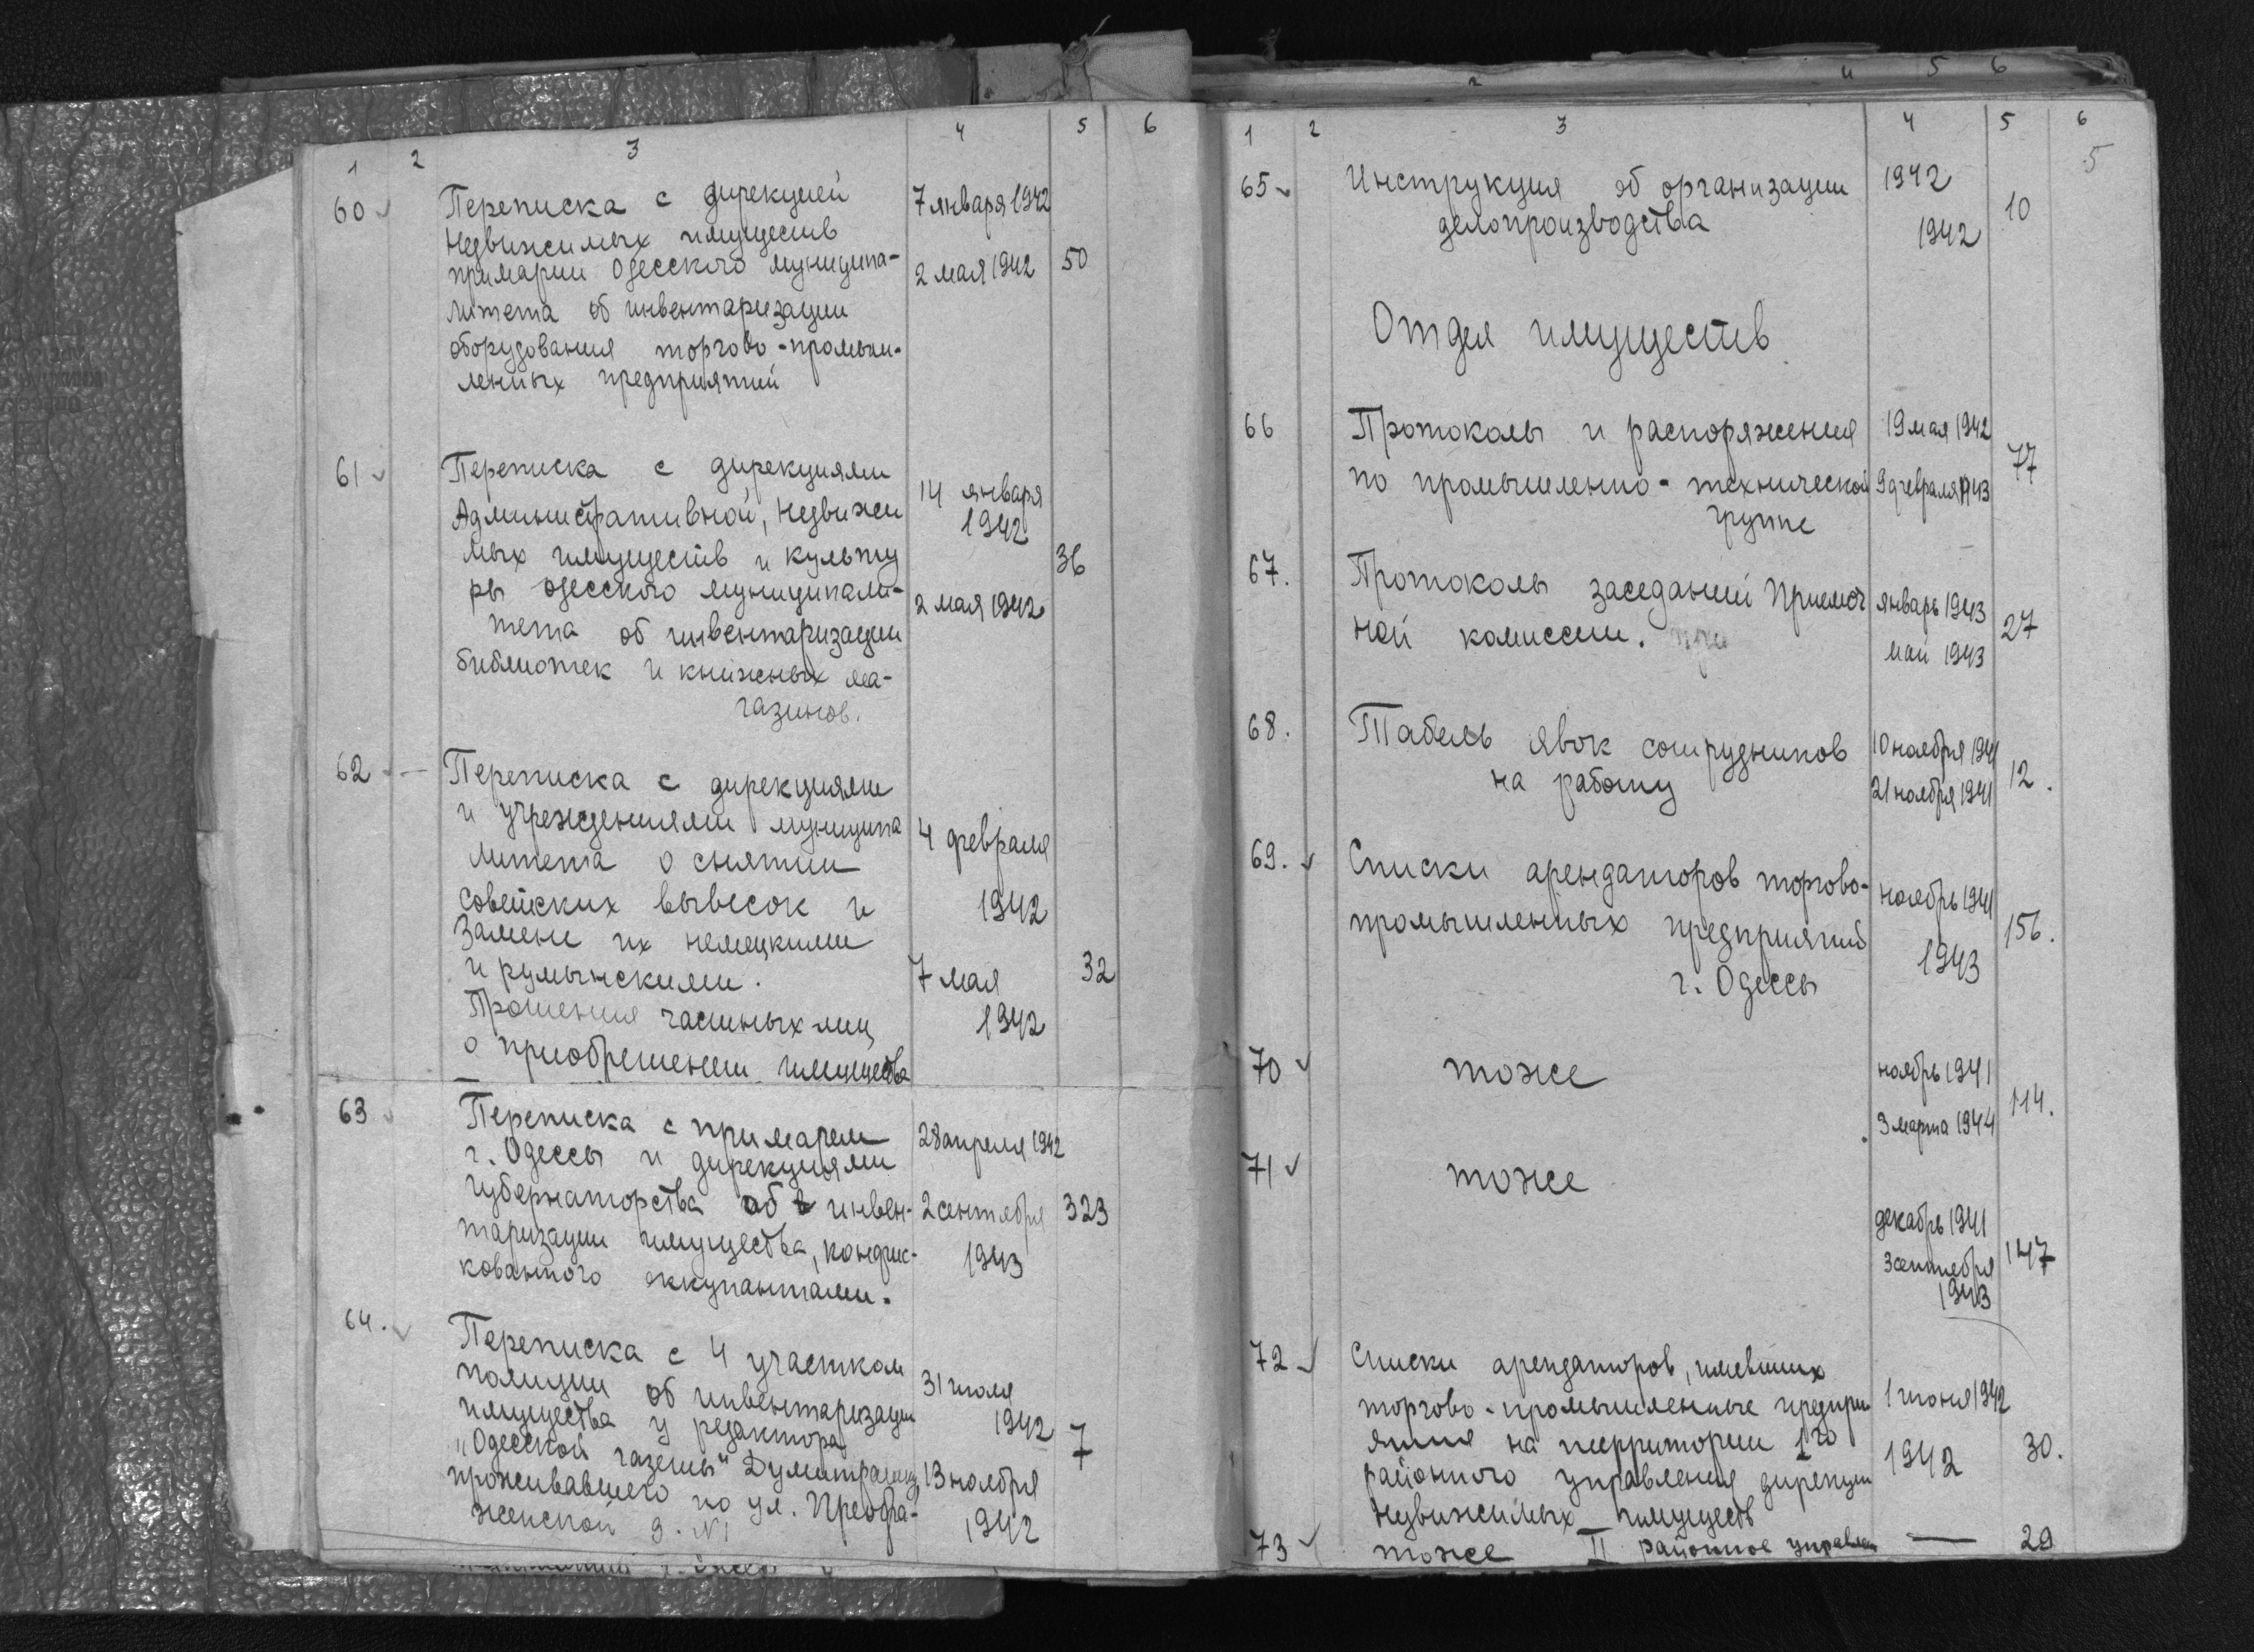 1 2 3 4 5 6
60 Переписка с дирекцией 7 января 1942
недвижимых имуществ
примарии Одесского муниципа- 2 мая 1942 50
литета об инвентаризации
оборудования торгово-промыш-
ленных предприятий
61 Переписка с дирекциями
Административной, недвижи 14 января 1942
мых имуществ и культу 36
ры одесского муниципали- 2 мая 1942
тета об инвентаризации
библиотек и книжных ма-
газинов.
62 - Переписка с дирекциями
и учреждениями муниципа 4 февраля
литета о снятии
советских вывесок и 1942
замене их немецкими
и румынскими. 7 мая 32
Прошения частных лиц 1942
о приобретении имущества
63 Переписка с примарем 28 апреля 1942
г. Одессы и дирекциями
губернаторства об инвен- 2 сентября 323
таризации имущества, конфис- 1943
кованного оккупантами.
64. Переписка с 4 участком
полиции об инвентаризации 31 июля
имущества у редактора 1942 7
„Одесской газеты"
проживавшего по ул. Преобра- 13 ноября
женской д. №1 1942
4 5 6
1 2 3 4 5 6
5
65 Инструкция об организации 1942 10
делопроизводства 1942
Отдел имуществ
66 Протоколы и распоряжения 19 мая 1942 77
по промышленно-технической 9 февраля 1943
группе
67. Протоколы заседаний Приемоч январь 1943 27
ной комиссии. при май 1943
68. Табель явок сотрудников 10 ноября 1941 12.
на работу 21 ноября 1941
69. Списки арендаторов торгово- ноябрь 1941
промышленных предприятий 1943 156.
г. Одессы
70 тоже ноябрь 1941 114.
3 марта 1944
71 тоже
декабрь 1941 147
3 сентября
1943
72 Списки арендаторов, имевших
торгово-промышленные предпри 1 июня 1942
ятия на территории 1го 1942 30.
районного управления дирекции
недвижимых имуществ
73 тоже II районное управлен — 29